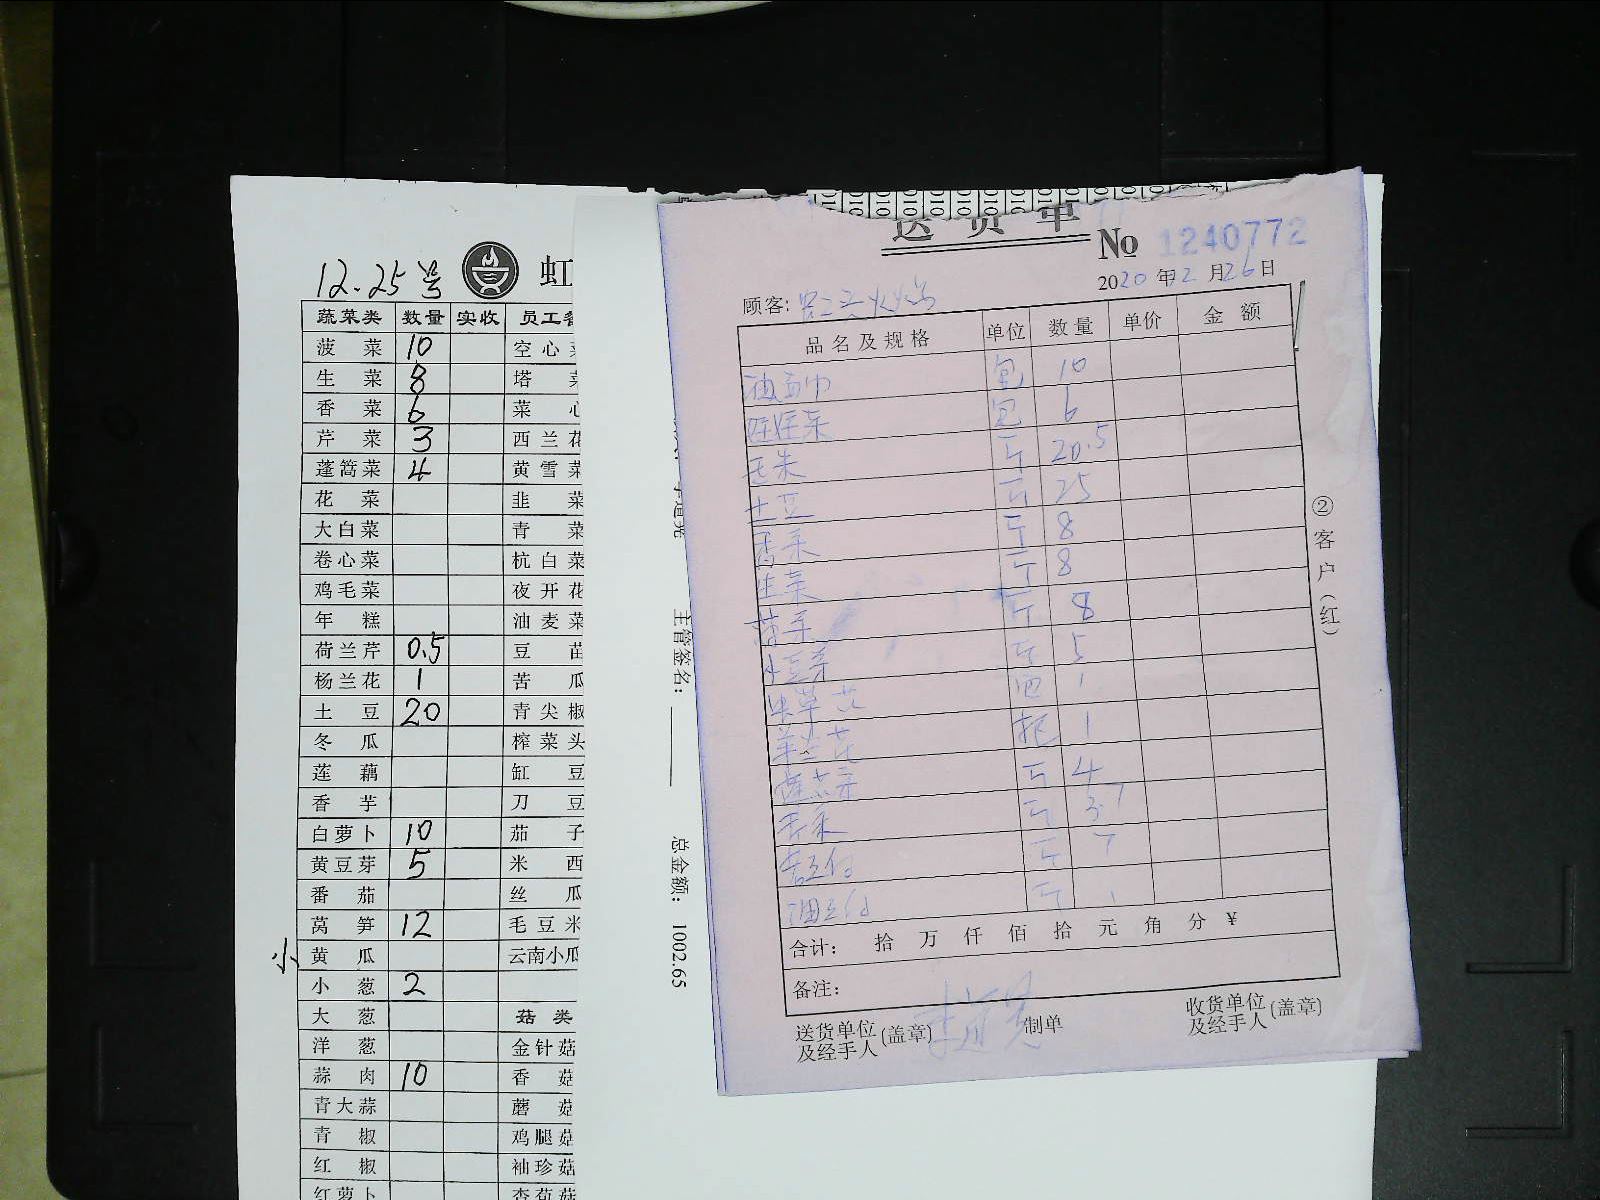 12.25号
虹
蔬菜类 数量 实收 员工餐
菠菜 10 空心菜
生菜 8 塔菜
香菜 6 菜心
芹菜 3 西兰花
蓬蒿菜 4 黄雪菜
花菜 韭菜
大白菜 青菜
卷心菜 杭白菜
鸡毛菜 夜开花
年糕 油麦菜
荷兰芹 0.5 豆苗
杨兰花 1 苦瓜
土豆 20 青尖椒
冬瓜 榨菜头
莲藕 缸豆
香芋 刀豆
白萝卜 10 茄子
黄豆芽 5 米西
番茄 丝瓜
莴笋 12 毛豆米
小 黄瓜 云南小瓜
小葱 2
大葱 菇类
洋葱 金针菇
蒜肉 10 香菇
青大蒜 蘑菇
青椒 鸡腿菇
红椒 袖珍菇
红萝卜 杏荀菇
主管签名:
总金额: 1002.65
送货单
No 1240772
2020年12月26日
顾客:
品名及规格 单位 数量 单价 金额
包 10
包 6
斤 20.5
土豆 斤 25
香菜 斤 8
生菜 斤 8
菠菜 斤 8
斤 5
1
把 1
斤 4
斤 3.7
斤
斤
合计: 拾 万 仟 佰 拾 元 角 分 ¥
备注:
送货单位及经手人(盖章) 制单 收货单位及经手人(盖章)
②客户(红)